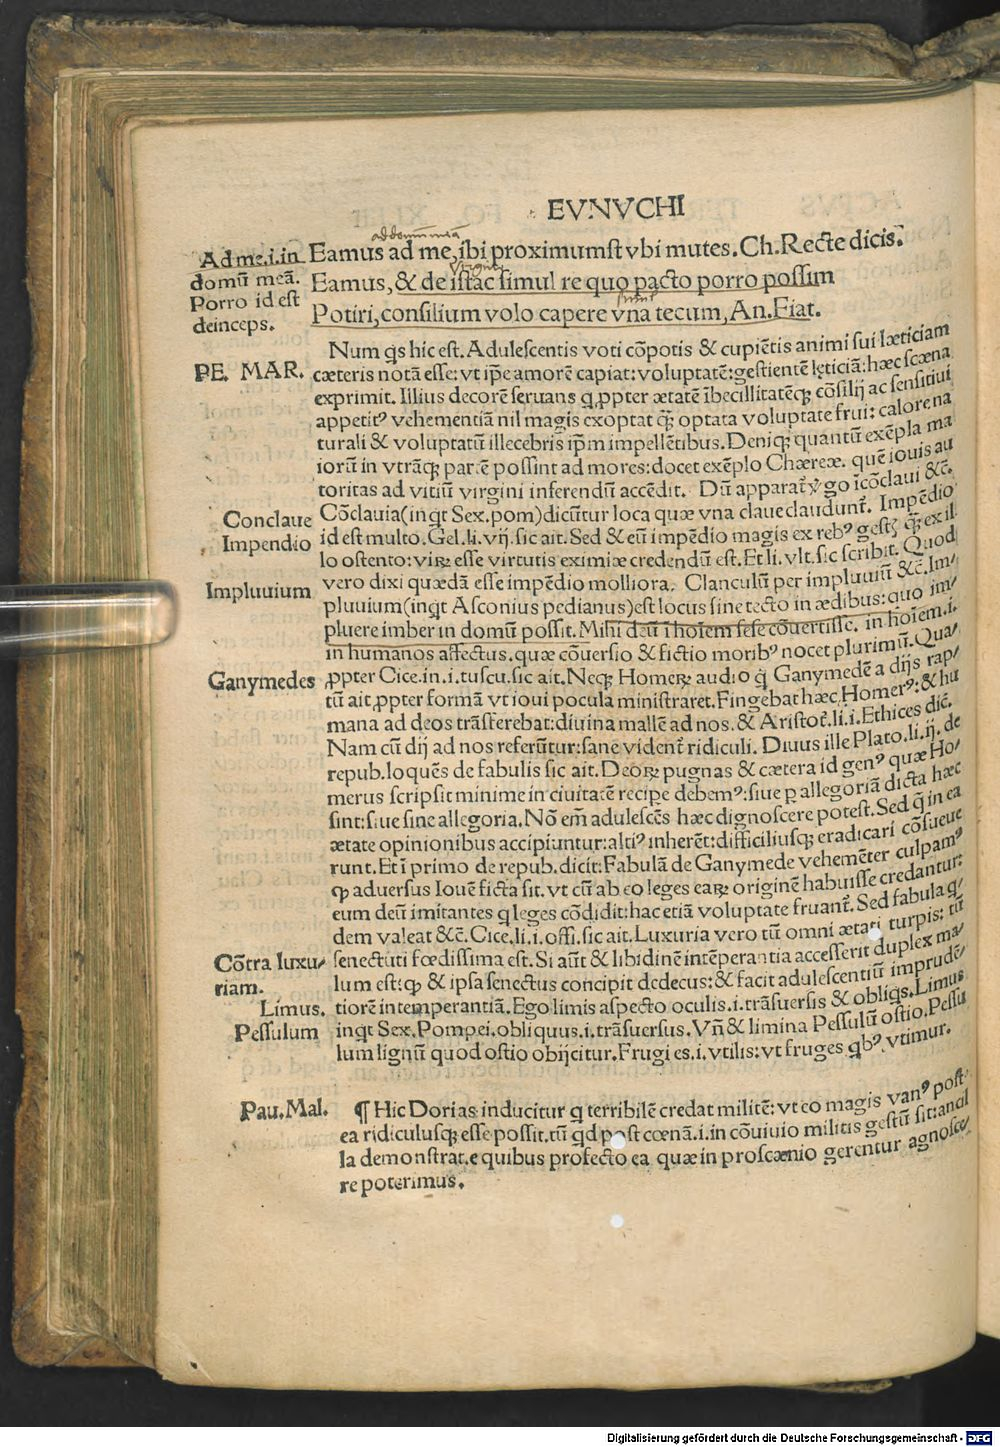 EVNVCHI
ad domum meā
Ad me.i.in
domū meā.
Porro id est
deinceps.
Eamus ad me, ibi proximumst vbi mutes. Ch. Recte dicis.
Eamus, & de istac simul re quo pacto porro possim
Potiri, consilium volo capere vna tecum, An. Fiat.
PE. MAR.
Num qs hic est. Adulescentis voti cōpotis & cupiētis animi sui læticiam
cæteris notā esse: vt ip̄e amorē capiat: voluptatē: gestientē lęticiā: hæc scæna
exprimit. Illius decorē seruans q ꝓpter ætatē ībecillitatēqꝫ cōsilij ac sensitiui
appetitꝰ vehementiā nil magis exoptat qꝫ optata voluptate frui: calore na
turali & voluptatū illecebris ip̄m impellētibus. Deniqꝫ quantū exēpla ma
iorū in vtrāqꝫ partē possint ad mores: docet exēplo Chæreæ. quē iouis au
toritas ad vitiū virgini inferendū accēdit. Dū apparat̄ ỹgo īcōclaui &c̄.
Conclaue
Cōclauia (inqt Sex. pom) dicūtur loca quæ vna claue claudunt̄. Impēdio
Impendio
id est multo. Gel. li. vij. sic ait. Sed & eū impēdio magis ex rebꝰ gestꝭ qꝫ ex il
lo ostento: virꝝ esse virtutis eximiæ credendū est. Et li. vlt. sic scribit. Quod
Impluuium
vero dixi quædā esse impēdio molliora. Clanculū per impluuiū &c̄. Im/
pluuium (inqt Asconius pedianus) est locus sine tecto in ædibus: quo im/
pluere imber in domū possit. Mihi deū ī hoīem sese cōuertisse. in hoīem .i.
in humanos affectus. quæ cōuersio & fictio moribꝰ nocet plurimū. Qua/
Ganymedes
ꝓpter Cice. in .i. tuscu. sic ait. Neqꝫ Homerꝝ audio q̄ Ganymedē a dijs rap/
tū ait, ꝓpter formā vt ioui pocula ministraret. Fingebat hæc Homerꝰ: & hu
mana ad deos trāsferebat: diuina mallē ad nos. & Aristot̄. li. i. Ethices dic̄.
Nam cū dij ad nos referūtur: sane vident̄ ridiculi. Diuus ille Plato. li. ij. de
repub. loquēs de fabulis sic ait. Deorꝝ pugnas & cætera id genꝰ quæ Ho/
merus scripsit minime in ciuitatē recipe debemꝰ: siue p allegoriā dicta hæc
sint: siue sine allegoria. Nō em̄ adulescēs hæc dignoscere potest. Sed q̄ in ea
ætate opinionibus accipiuntur: altiꝰ inherēt: difficiliusqꝫ eradicari cōsueue
runt. Et ī primo de repub. dicit: Fabulā de Ganymede vehemēter culpamꝰ
qꝫ aduersus Iouē ficta sit. vt cū ab eo leges earꝝ originē habuisse credantur:
eum deū imitantes q leges cōdidit: hac etiā voluptate fruant̄. Sed fabula q/
dem valeat &c̄. Cice. li. i. offi. sic ait. Luxuria vero tū omni ætati turpis: tū
Cōtra luxu/
riam.
senectuti fœdissima est. Si aūt & libidinē intēperantia accesserit duplex ma/
lum est: qꝫ & ipsa senectus concipit dedecus: & facit adulescentiū imprudē/
Limus.
tiorē intemperantiā. Ego limis aspecto oculis .i. trāsuersis & obliqs. Limus
Pessulum
inqt Sex. Pompei. obliquus .i. trāsuersus. Vn̄ & limina Pessulū ostio. Pessu
lum lignū quod ostio obijcitur. Frugi es .i. vtilis: vt fruges qbꝰ vtimur.
Pau. Mal.
¶ Hic Dorias inducitur q terribilē credat militē: vt eo magis vanꝰ post
ea ridiculusqꝫ esse possit. tū qd post cœnā .i. in cōuiuio militis gestū sit: ancil
la demonstrat. e quibus profecto ea quæ in proscænio gerentur agnosce/
re poterimus.
Digitalisierung gefördert durch die Deutsche Forschungsgemeinschaft - DFG